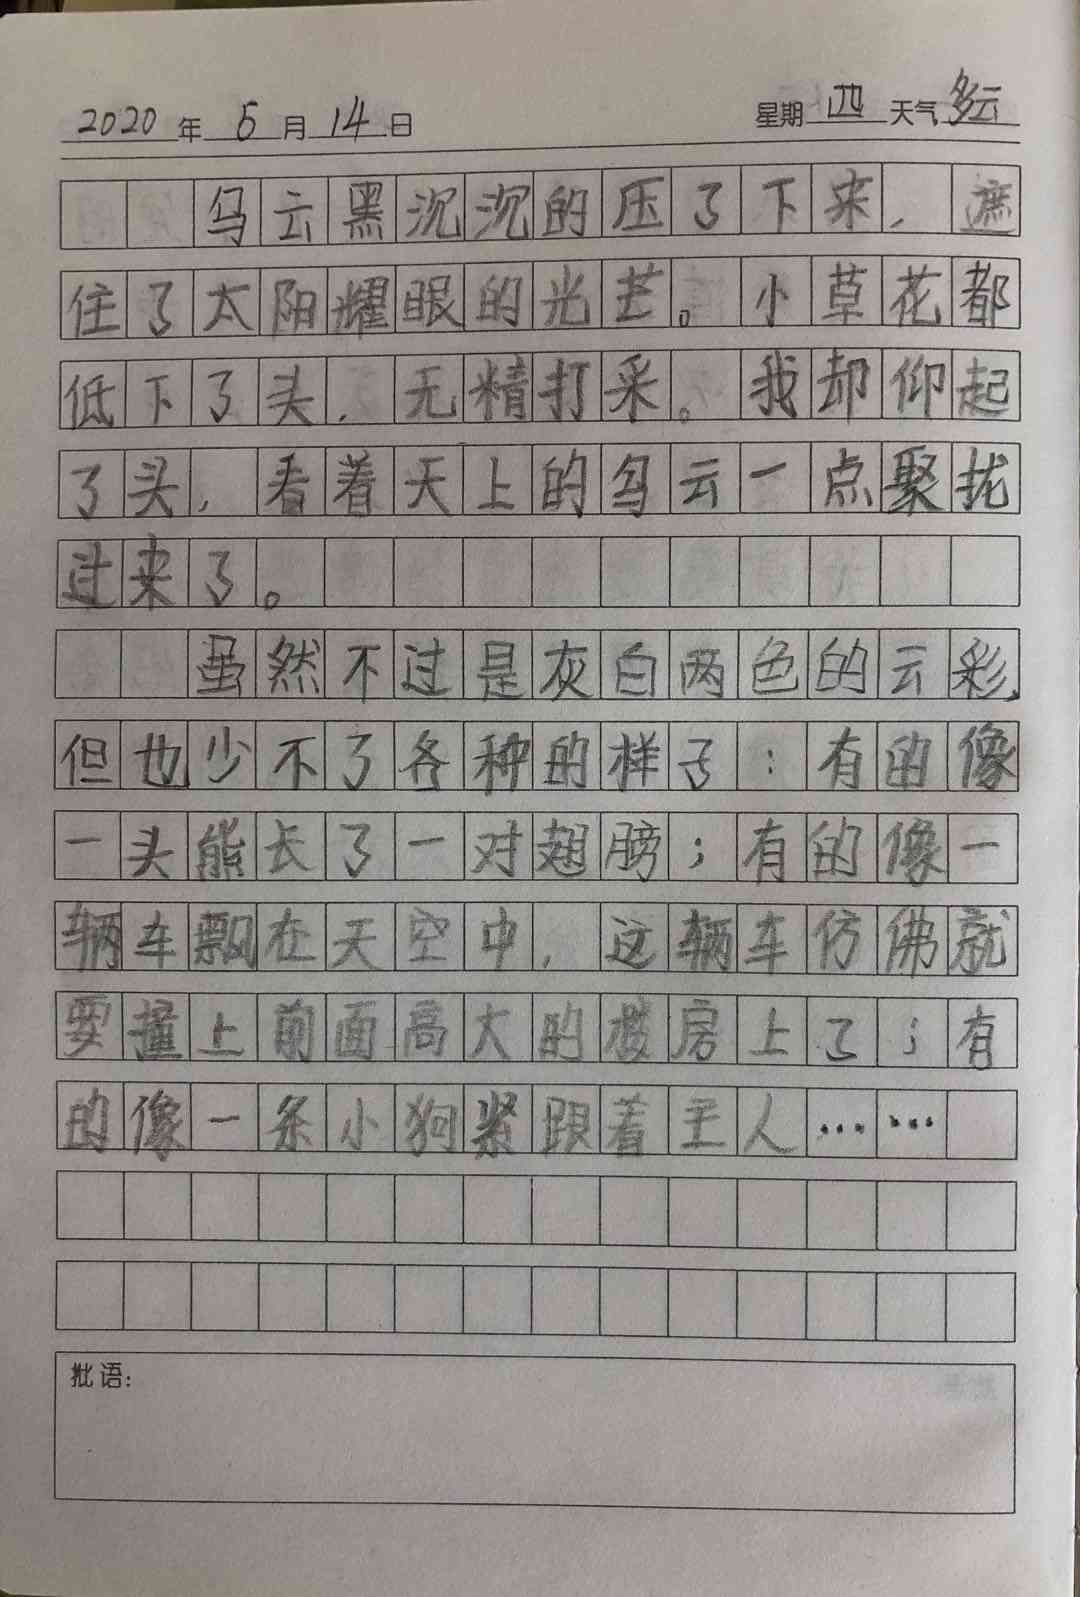 2020年5月14日 星期四天气多云
乌云黑沉沉的压了下来,遮
住了太阳耀眼的光芒。小草花都
低下了头,无精打采。我却仰起
了头,看着天上的乌云一点聚拢
过来了。
虽然不过是灰白两色的云彩,
但也少不了各种的样子:有的像
一头熊长了一对翅膀;有的像一
辆车飘在天空中,这辆车仿佛就
要撞上前面高大的楼房上了;有
的像一条小狗紧跟着主人……
批语: